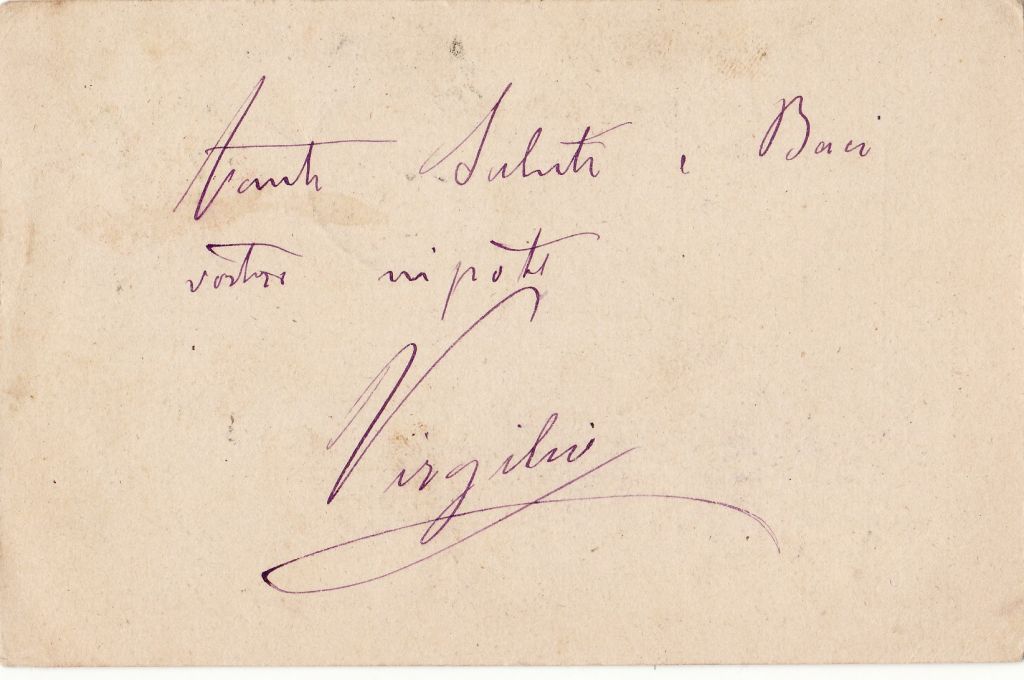 Tanti Saluti e Baci
vostro nipote
Virgilio